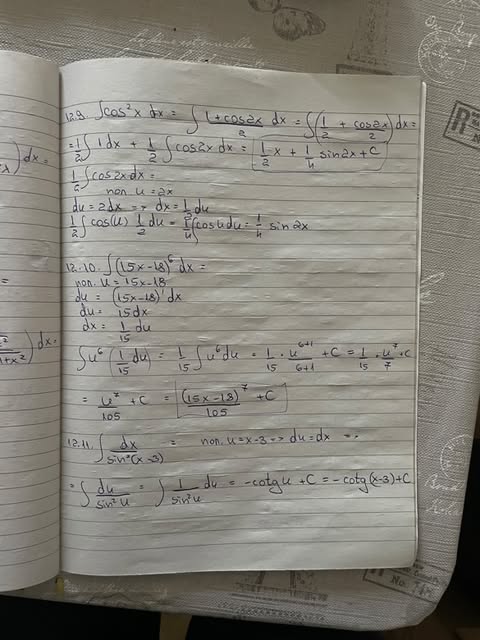 12.9. ∫cos²x dx = ∫(1+cos2x)/2 dx = ∫(1/2 + cos2x/2)dx =
= 1/2∫1dx + 1/2∫cos2x dx = 1/2 x + 1/4 sin2x + C
1/2∫cos2x dx =
пол. u = 2x
du = 2dx => dx = 1/2 du
1/2∫cos(u) 1/2 du = 1/4∫cosu du = 1/4 sin 2x
12.10. ∫(15x-18)⁶ dx =
пол. u = 15x-18
du = (15x-18)' dx
du = 15dx
dx = 1/15 du
∫u⁶(1/15 du) = 1/15∫u⁶du = 1/15 · u⁶⁺¹/6+1 + C = 1/15 · u⁷/7 + C
= u⁷/105 + C = (15x-18)⁷/105 + C
12.11. ∫dx/sin²(x-3) = пол. u = x-3 => du = dx =>
= ∫du/sin²u = ∫1/sin²u du = -cotg u + C = -cotg(x-3) + C
dx =
dx =